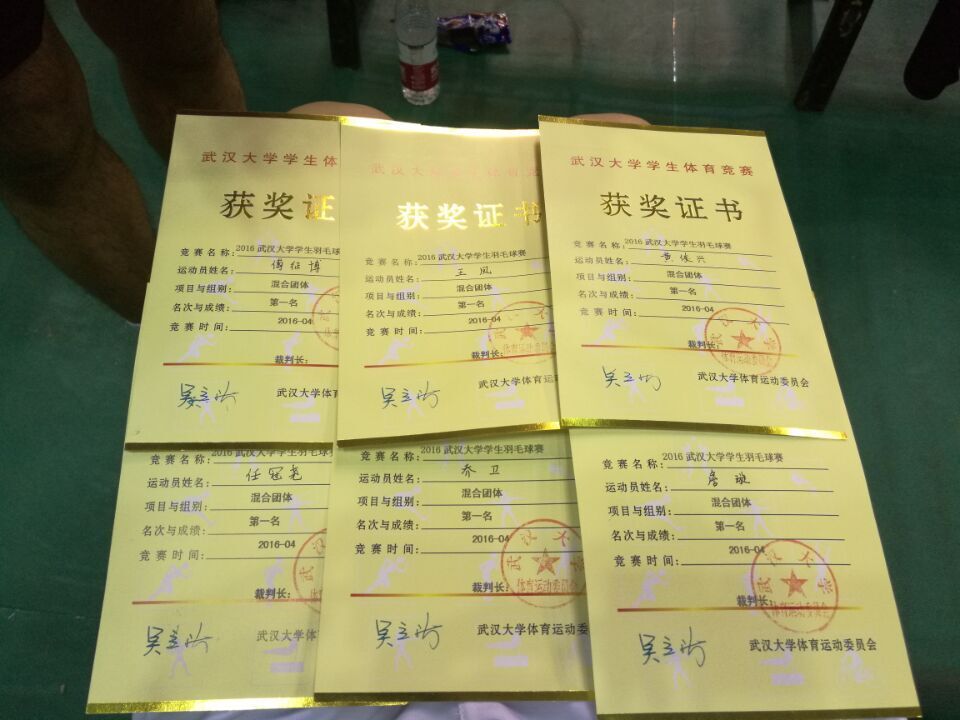 武汉大学学生体
获奖证
竞赛名称：2016 武汉大学学生羽毛球
运动员姓名：
项目与组别：混合团体
名次与成绩：第一名
竞赛时间：2016-04
裁判长：
武汉大学体育
武汉大学
获奖证书
竞赛名称：2016 武汉大学学生羽毛球赛
运动员姓名：王凤
项目与组别：混合团体
名次与成绩：第一名
竞赛时间：2016-04
裁判长：
体育运动委员会
武汉大学体育运动委
武汉大学学生体育竞赛
获奖证书
竞赛名称：2016 武汉大学学生羽毛球赛
运动员姓名：黄俊兴
项目与组别：混合团体
名次与成绩：第一名
竞赛时间：2016-04
裁判长：
武汉大学
体育运动委员会
武汉大学体育运动委员会
竞赛名称：2016 武汉大学学生羽毛球赛
运动员姓名：任冠尧
项目与组别：混合团体
名次与成绩：第一名
竞赛时间：2016-04
裁判长：
武汉大学体育
竞赛名称：2016 武汉大学学生羽毛球赛
运动员姓名：乔卫
项目与组别：混合团体
名次与成绩：第一名
竞赛时间：2016-04
裁判长：
武汉大
体育运动委员会
武汉大学体育运动委
竞赛名称：2016 武汉大学学生羽毛球赛
运动员姓名：
项目与组别：混合团体
名次与成绩：第一名
竞赛时间：2016-04
裁判长：
武汉大学
体育运动委员会
武汉大学体育运动委员会